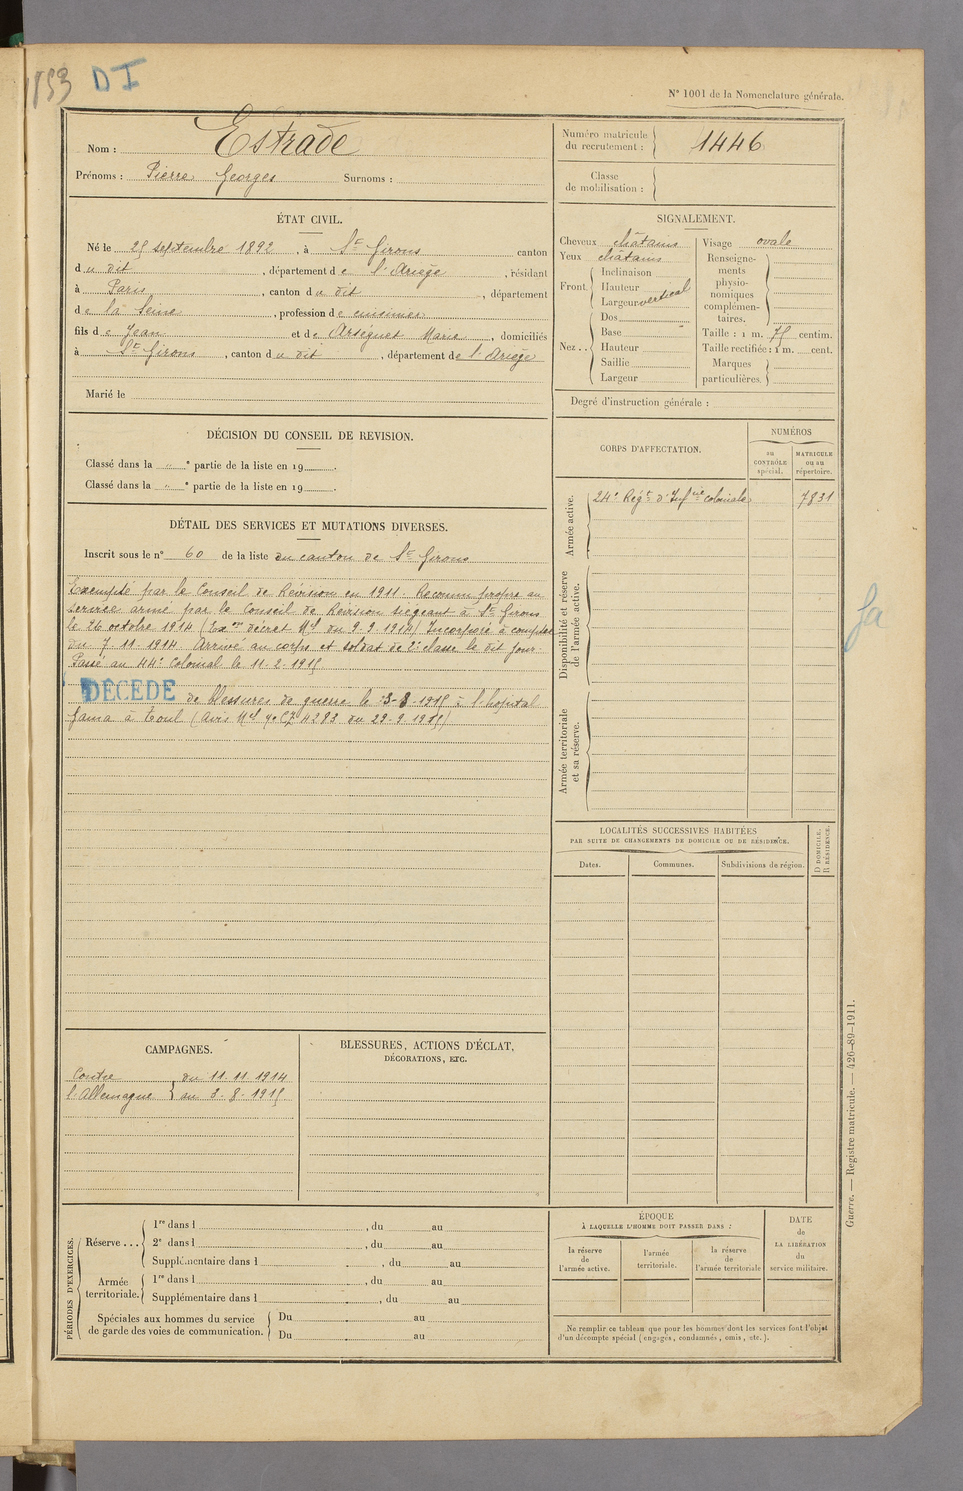 1153 DI
N° 1001 de la Nomenclature générale.
Nom : Estrade
Prénoms : Pierre Georges Surnoms :
Numéro matricule du recrutement : 1446
Classe de mobilisation :
ÉTAT CIVIL.
Né le 25 septembre 1892, à St Girons canton
du dit, département de l'Ariège, résidant
à Paris, canton du dit, département
de la Seine, profession de cuisinier
fils de Jean et de Arséguet Marie, domiciliés
à St Girons, canton du dit, département de l'Ariège
Marié le
SIGNALEMENT.
Cheveux châtains
Yeux châtains
Front. Inclinaison
Hauteur
Largeur vertical
Nez.. Dos
Base
Hauteur
Saillie
Largeur
Visage ovale
Renseigne-
ments
physio-
nomiques
complémen-
taires.
Taille : 1 m. 75 centim.
Taille rectifiée : 1 m. cent.
Marques
particulières.
Degré d'instruction générale :
DÉCISION DU CONSEIL DE REVISION.
Classé dans la " e partie de la liste en 19 .
Classé dans la " e partie de la liste en 19 .
CORPS D'AFFECTATION.
NUMÉROS
au CONTRÔLE spécial.
MATRICULE ou au répertoire.
Armée active.
24e Régt d'Infrie coloniale 7831
Disponibilité et réserve de l'armée active.
Armée territoriale et sa réserve.
DÉTAIL DES SERVICES ET MUTATIONS DIVERSES.
Inscrit sous le n° 60 de la liste du canton de St Girons
Exempté par le Conseil de Révision en 1911. Reconnu propre au
service armé par le Conseil de Révision siégeant à St Girons
le 26 octobre 1914 (Exon décret Mel du 9.9.1914) Incorporé à compter
du 7.11.1914. Arrivé au corps et soldat de 2e classe le dit jour.
Passé au 44e Colonial le 11.2.1915.
DÉCÉDÉ de blessures de guerre le 3-8-1915 à l'hôpital
Gama à Toul (Avis Mel 4283 du 29.9.1915)
LOCALITÉS SUCCESSIVES HABITÉES
PAR SUITE DE CHANGEMENTS DE DOMICILE OU DE RÉSIDENCE.
Dates.
Communes.
Subdivisions de région.
D DOMICILE.
R RÉSIDENCE.
CAMPAGNES.
Contre du 11.11.1914
l'Allemagne au 3.8.1915
BLESSURES, ACTIONS D'ÉCLAT,
DÉCORATIONS, ETC.
PÉRIODES D'EXERCICES.
Réserve... 1re dans l , du au
2e dans l , du au
Supplémentaire dans l , du au
Armée territoriale. 1re dans l , du au
Supplémentaire dans l , du au
Spéciales aux hommes du service
de garde des voies de communication.
Du au
Du au
ÉPOQUE
À LAQUELLE L'HOMME DOIT PASSER DANS :
la réserve de l'armée active.
l'armée territoriale.
la réserve de l'armée territoriale
DATE de LA LIBÉRATION du service militaire.
Ne remplir ce tableau que pour les hommes dont les services font l'objet
d'un décompte spécial (engagés, condamnés, omis, etc.).
Guerre. — Registre matricule. — 426-89-1911.